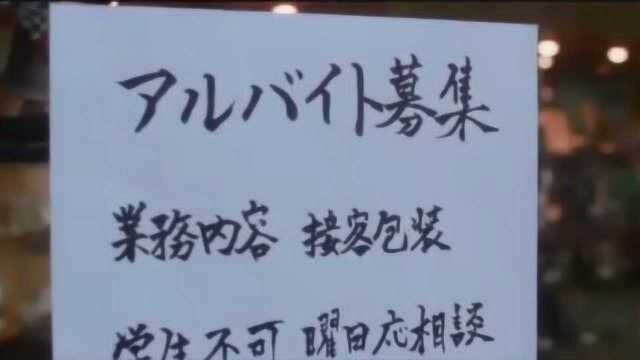 アルバイト募集
業務内容 接客包装
学生不可 曜日応相談